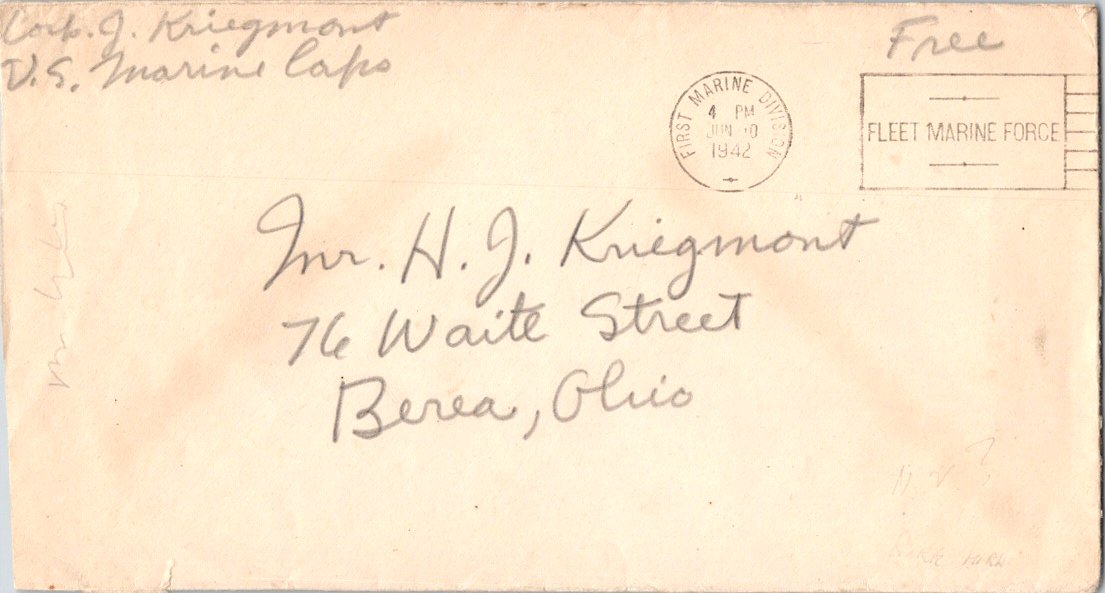 Corp. J. Kriegmont
U.S. Marine Caps
Free
FIRST MARINE DIVISION
4 PM
JUN 10
1942
FLEET MARINE FORCE
Mr. H. J. Kriegmont
76 Waite Street
Berea, Ohio